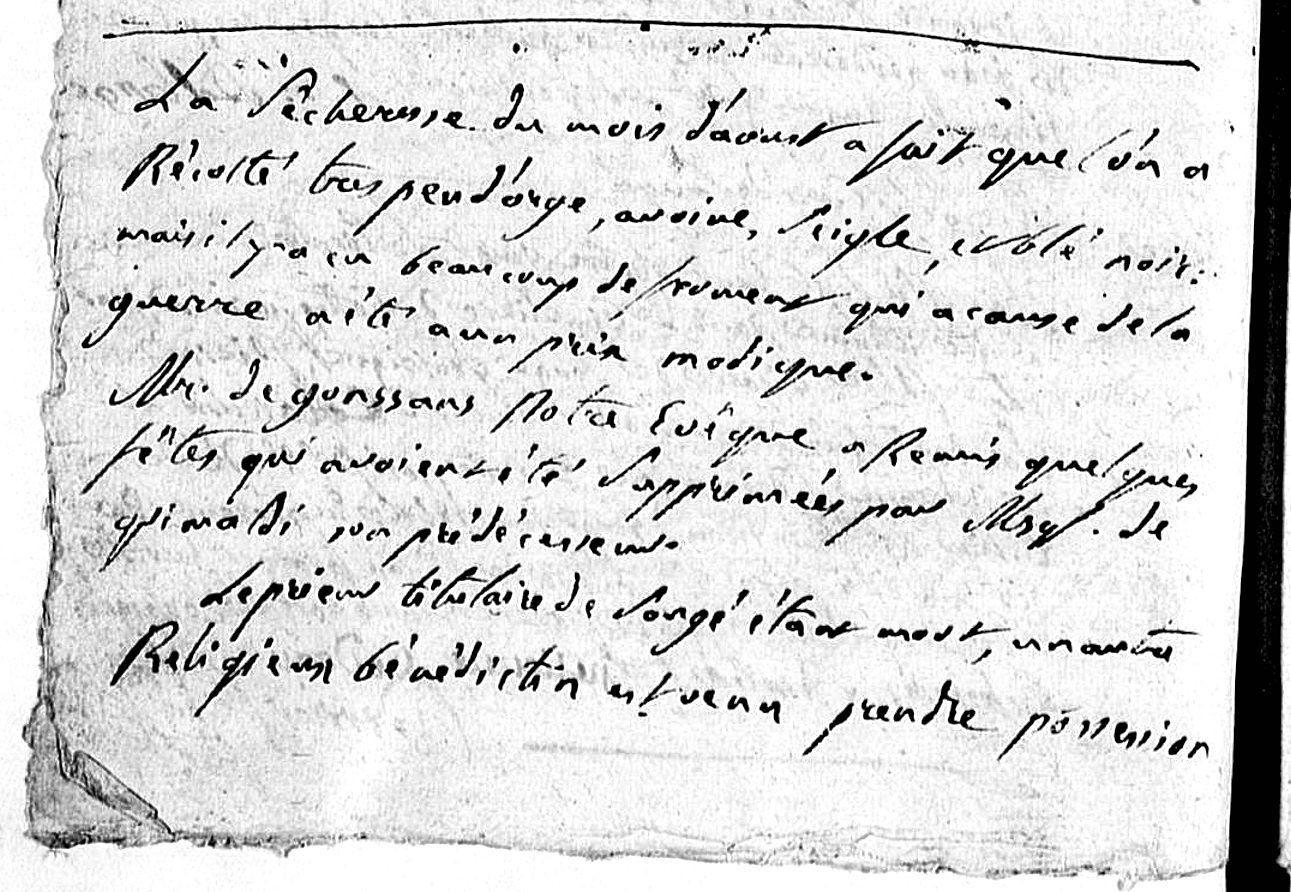 La sécheresse du mois d'aoust a fait que l'on a
Récolté tres peu d'orge, avoine, seigle, et blé noir:
mais il y a eu beaucoup de froment qui a cause de la
guerre a été a un prix modique.
Mr. de gonssans Notre Evêque, a Remis quelques
fêtes qui avoient été supprimées par Msgr. de
grimaldi son prédécesseur.
Le prieur titulaire de Songé étant mort, un autre
Religieux bénédictin est venu prendre possession